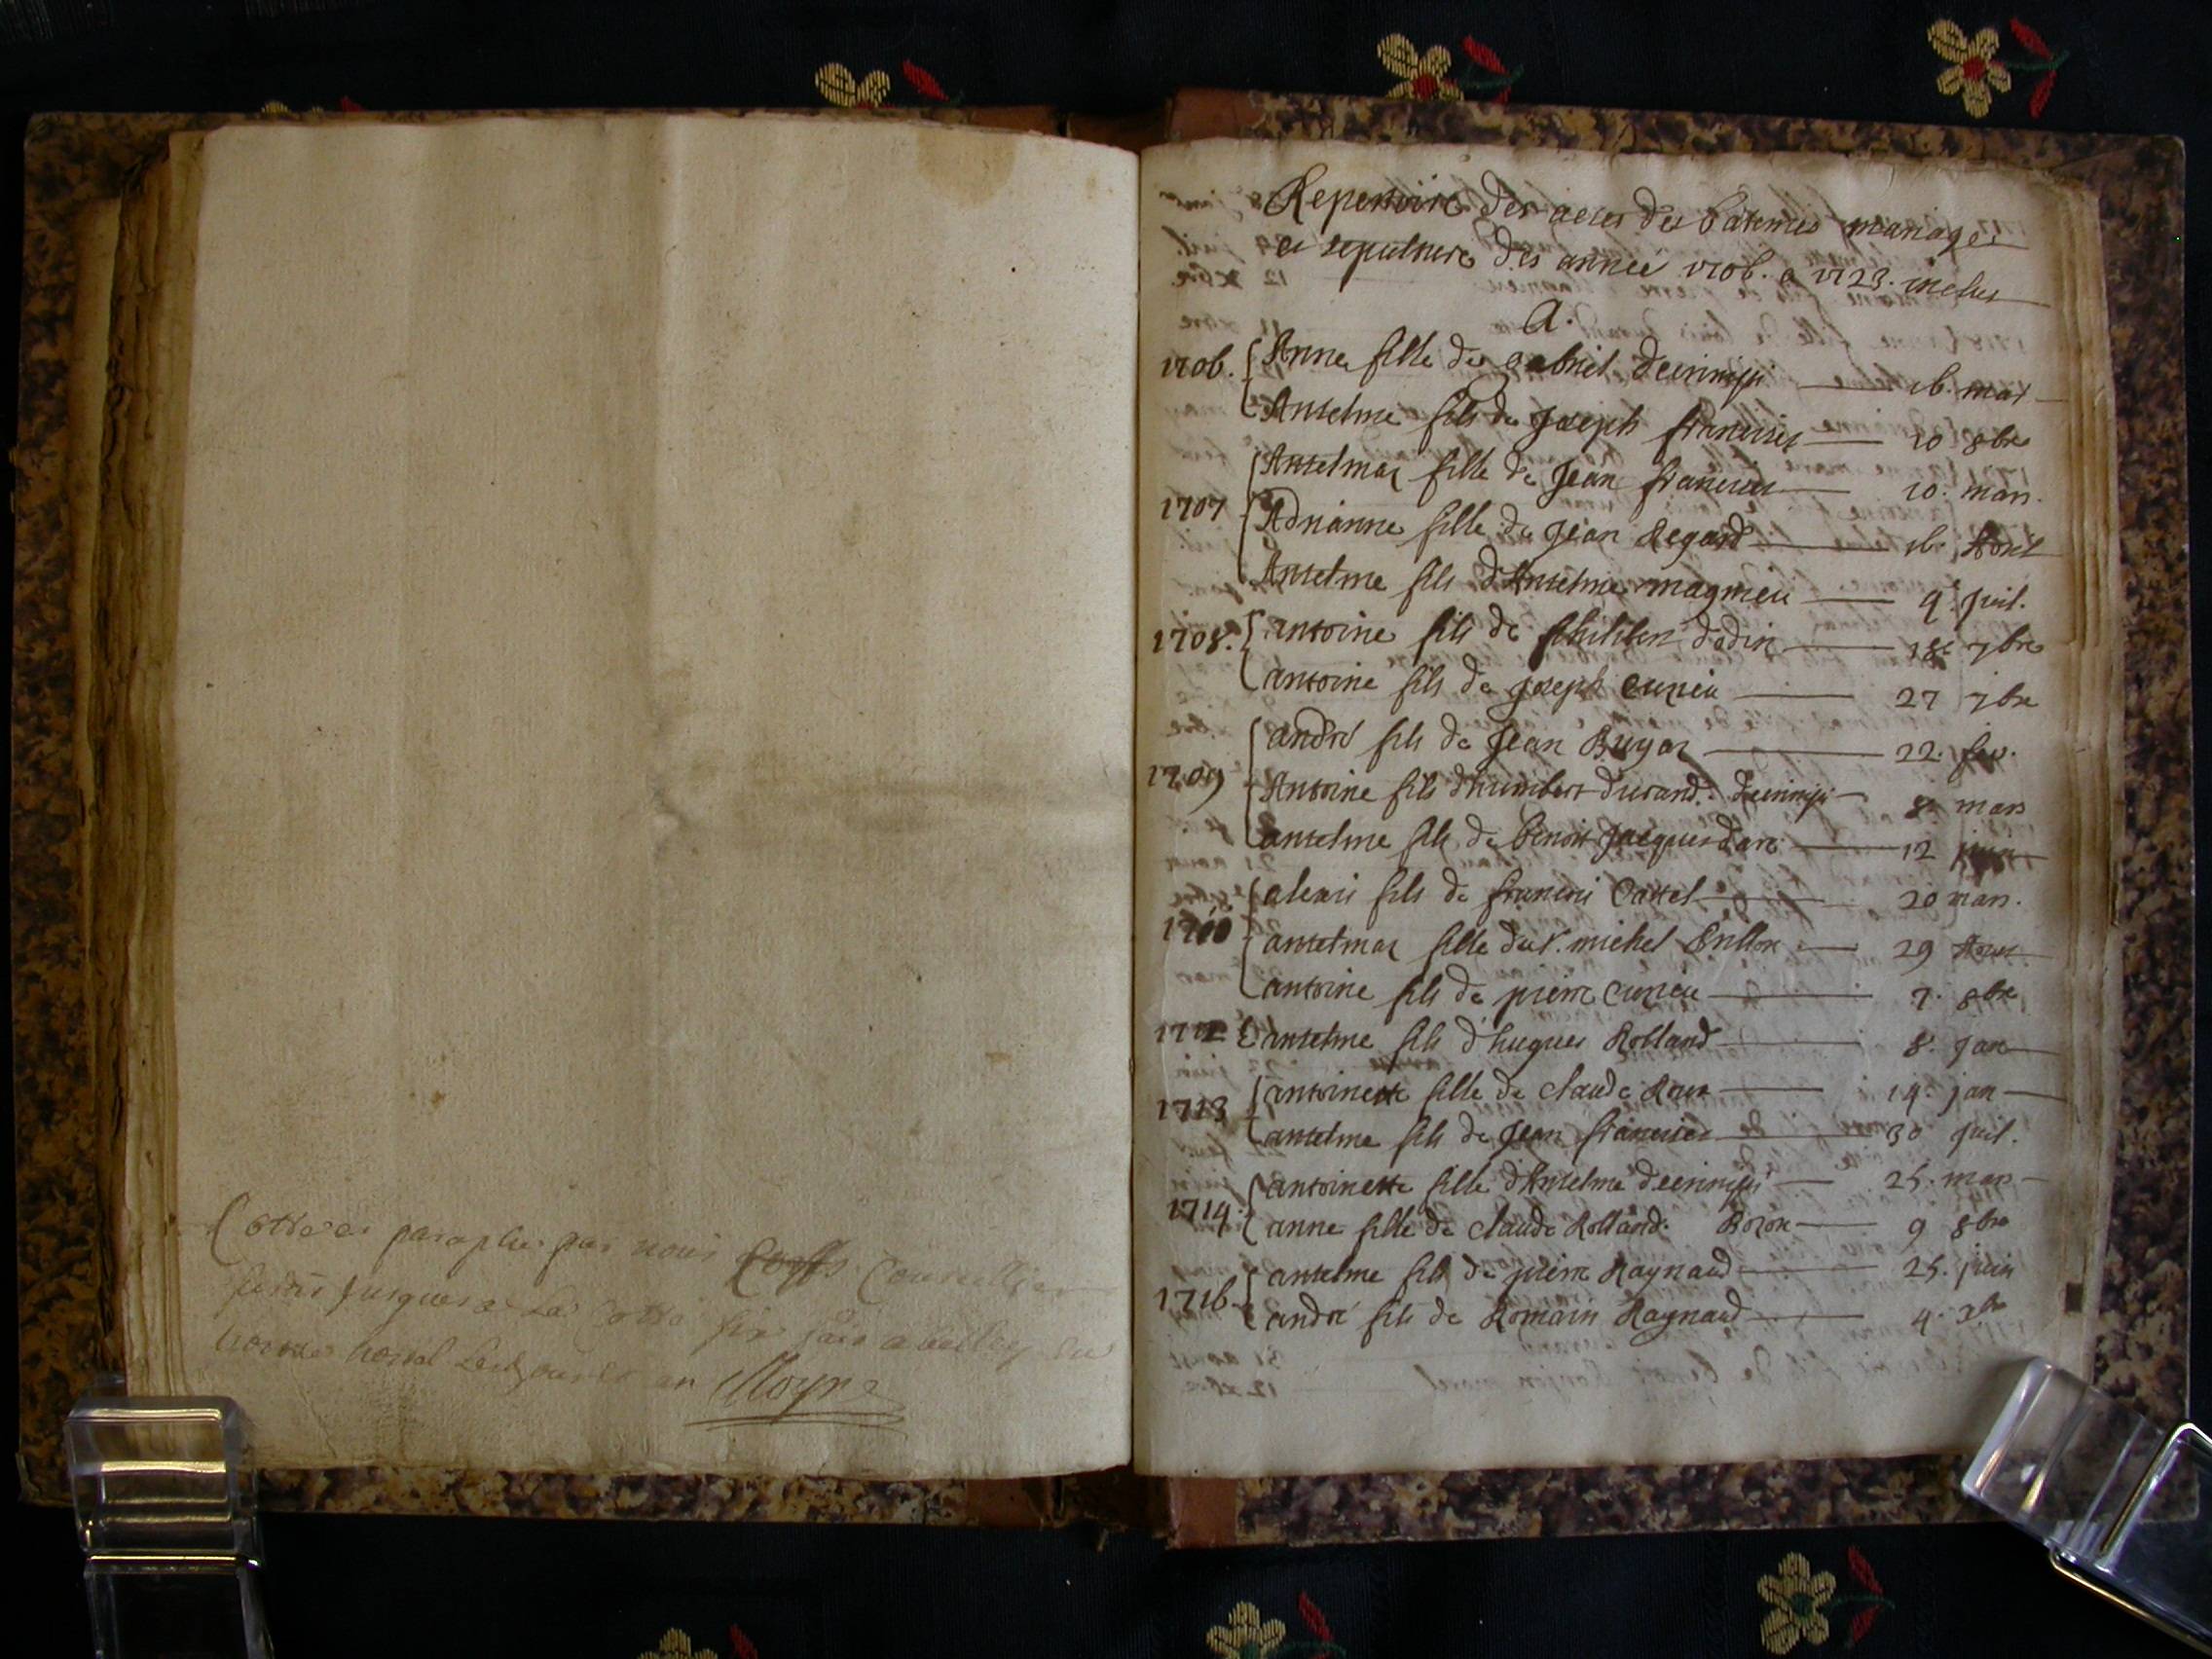 Cotté et paraphé par nous Conseiller
jusques a la Cotte six fait a belley
Moyne
Repertoire des actes des batemes mariages
et sepulture des année 1706. a 1723. inclus
A.
1706. Anne fille de gabriel decrinpi 16. mai
Antelme fils de Joseph francises 10 8bre
Antelmaz fille de Jean francises 10. mars.
1707 Adrianne fille de Jean Regard 16. Avril
Antelme fils d'Antelme magnieu 9. Juil.
1708. antoine fils de philibert dodin 18 7bre
antoine fils de joseph Curieu 27 7bre
andré fils de Jean Buyat 22. fev.
1709 Antoine fils d'humbert durand. 8 mars
antelme fils de benoit Jacques dare 12
alexis fils de francois Cattel 20 mars.
1710 antelmaz fille du Sr. michel Brillon 29 Aout
antoine fils de pierre Curieu 7. 8bre
1712 antelme fils d'hugues Rolland 8. Jan
1713 antoinette fille de claude Roux 14. jan
antelme fils de Jean francises 30 Juil.
antoinette fille d'Antelme decrinpi 25. mars
1714. anne fille de claude Rolland. Bozon 9 8bre
antelme fils de pierre Raynaud 25. juin
1716. andré fils de Romain Raynaud 4.